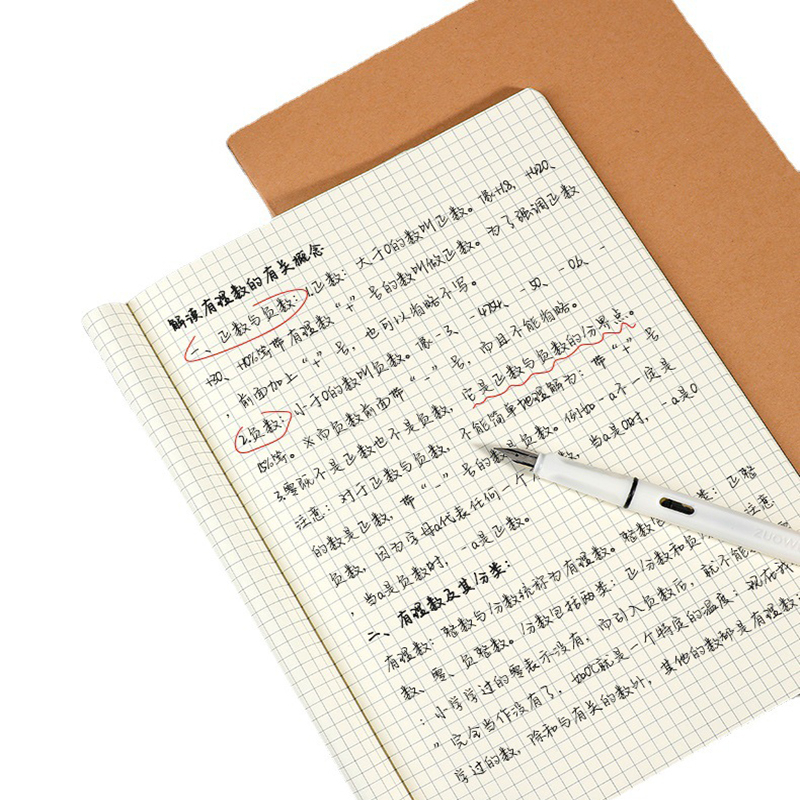 解读有理数的有关概念
一、正数与负数：1.正数：大于0的数叫正数。像+1.8、+420、
+30、+10%等带有理数“+”号的数叫做正数。为了强调正数
，前面加上“+”号，也可以省略不写。
2.负数：小于0的数叫负数。像-3、-4754、-50、-0.6、-
15%等。※而负数前面带“-”号，而且不能省略。
3.零既不是正数也不是负数，它是正数与负数的分界点。
注意：对于正数与负数，不能简单地理解为：带“+”号
的数是正数，带“-”号的数是负数。例如-a不一定是
负数，因为字母a代表任何一个 数，当a是0时，-a是0
，当a是负数时，-a是正数。
二、有理数及其分类：
有理数：整数与分数统称为有理数。整数 类：正整
数、零、负整数。分数包括两类：正分数和负 注意
：小学学过的零表示没有，而引入负数后，就不能
”完全当作没有了，如0℃就是一个特定的温度；现在
学过的数，除和与有关的数外，其他的数都是有理数；
ZUOW